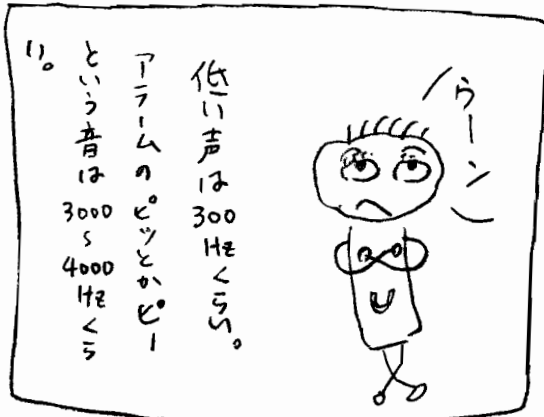 ウーン
低い声は300Hzくらい。
アラームのピッとかピー
という音は3000〜4000Hzくら
い。